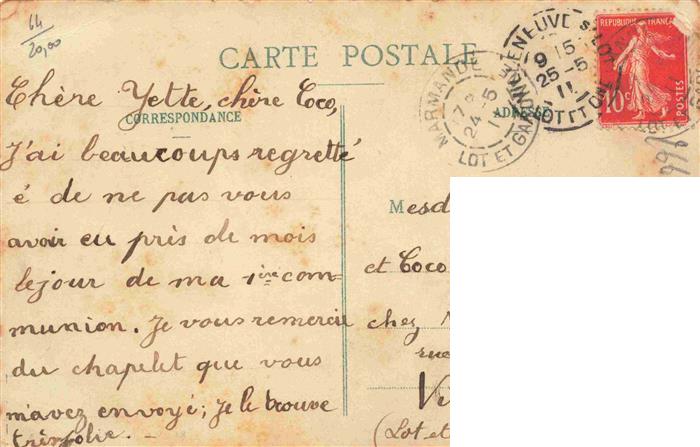 64
20,00
CARTE POSTALE
CORRESPONDANCE
ADRESSE
Chère Yette, chère Coco,
J'ai beaucoups regretté
é de ne pas vous
avoir eu près de mois
le jour de ma 1ère com=
munion. Je vous remercie
du chapelet que vous
m'avez envoyé; je le trouve
très jolie. -
Mesd
et Coco
chez
rue
Vi
(Lot et
MARMANDE
24-5
LOT ET GARONNE
VILLENEUVE S. LOT
9 15
25-5
11
REPUBLIQUE FRANÇAISE
10c
POSTES